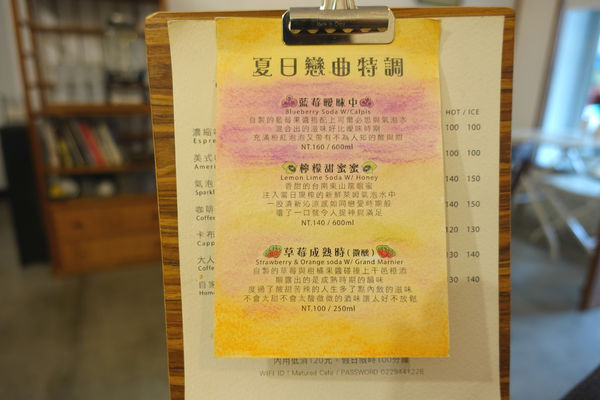 夏日戀曲特調
藍莓曖昧中
Blueberry Soda W/Calpis
自製的藍莓果醬搭配上可爾必思與氣泡水
混合出的滋味好比曖昧時期
充滿粉紅泡泡又帶有不為人知的酸與甜
NT.160 / 600ml
檸檬甜蜜蜜
Lemon Lime Soda W/ Honey
香甜的台南東山龍眼蜜
注入當日現榨的新鮮萊姆氣泡水中
一股清新沁涼感如同戀愛時期般
嚐了一口就令人提神與滿足
NT.140 / 600ml
草莓成熟時(微醺)
Strawberry & Orange soda W/ Grand Marnier
自製的草莓與柑橘果醬碰撞上干邑橙酒
順露出的是成熟時期的韻味
度過了酸甜苦辣的人生多了點內斂的滋味
不會太甜不會太酸微微的酒味讓人好不放鬆
NT.100 / 250ml
HOT / ICE
濃縮
Espre
100 100
美式
Ameri
100 100
氣泡
Spark
140 150
咖啡
Coffee
140 150
卡布
Capp
120 130
大人
Coffee
130 140
自家
Home
內用低消120元、假日限時100分鐘
WIFI ID : Matured Cafe / PASSWORD 0229441228